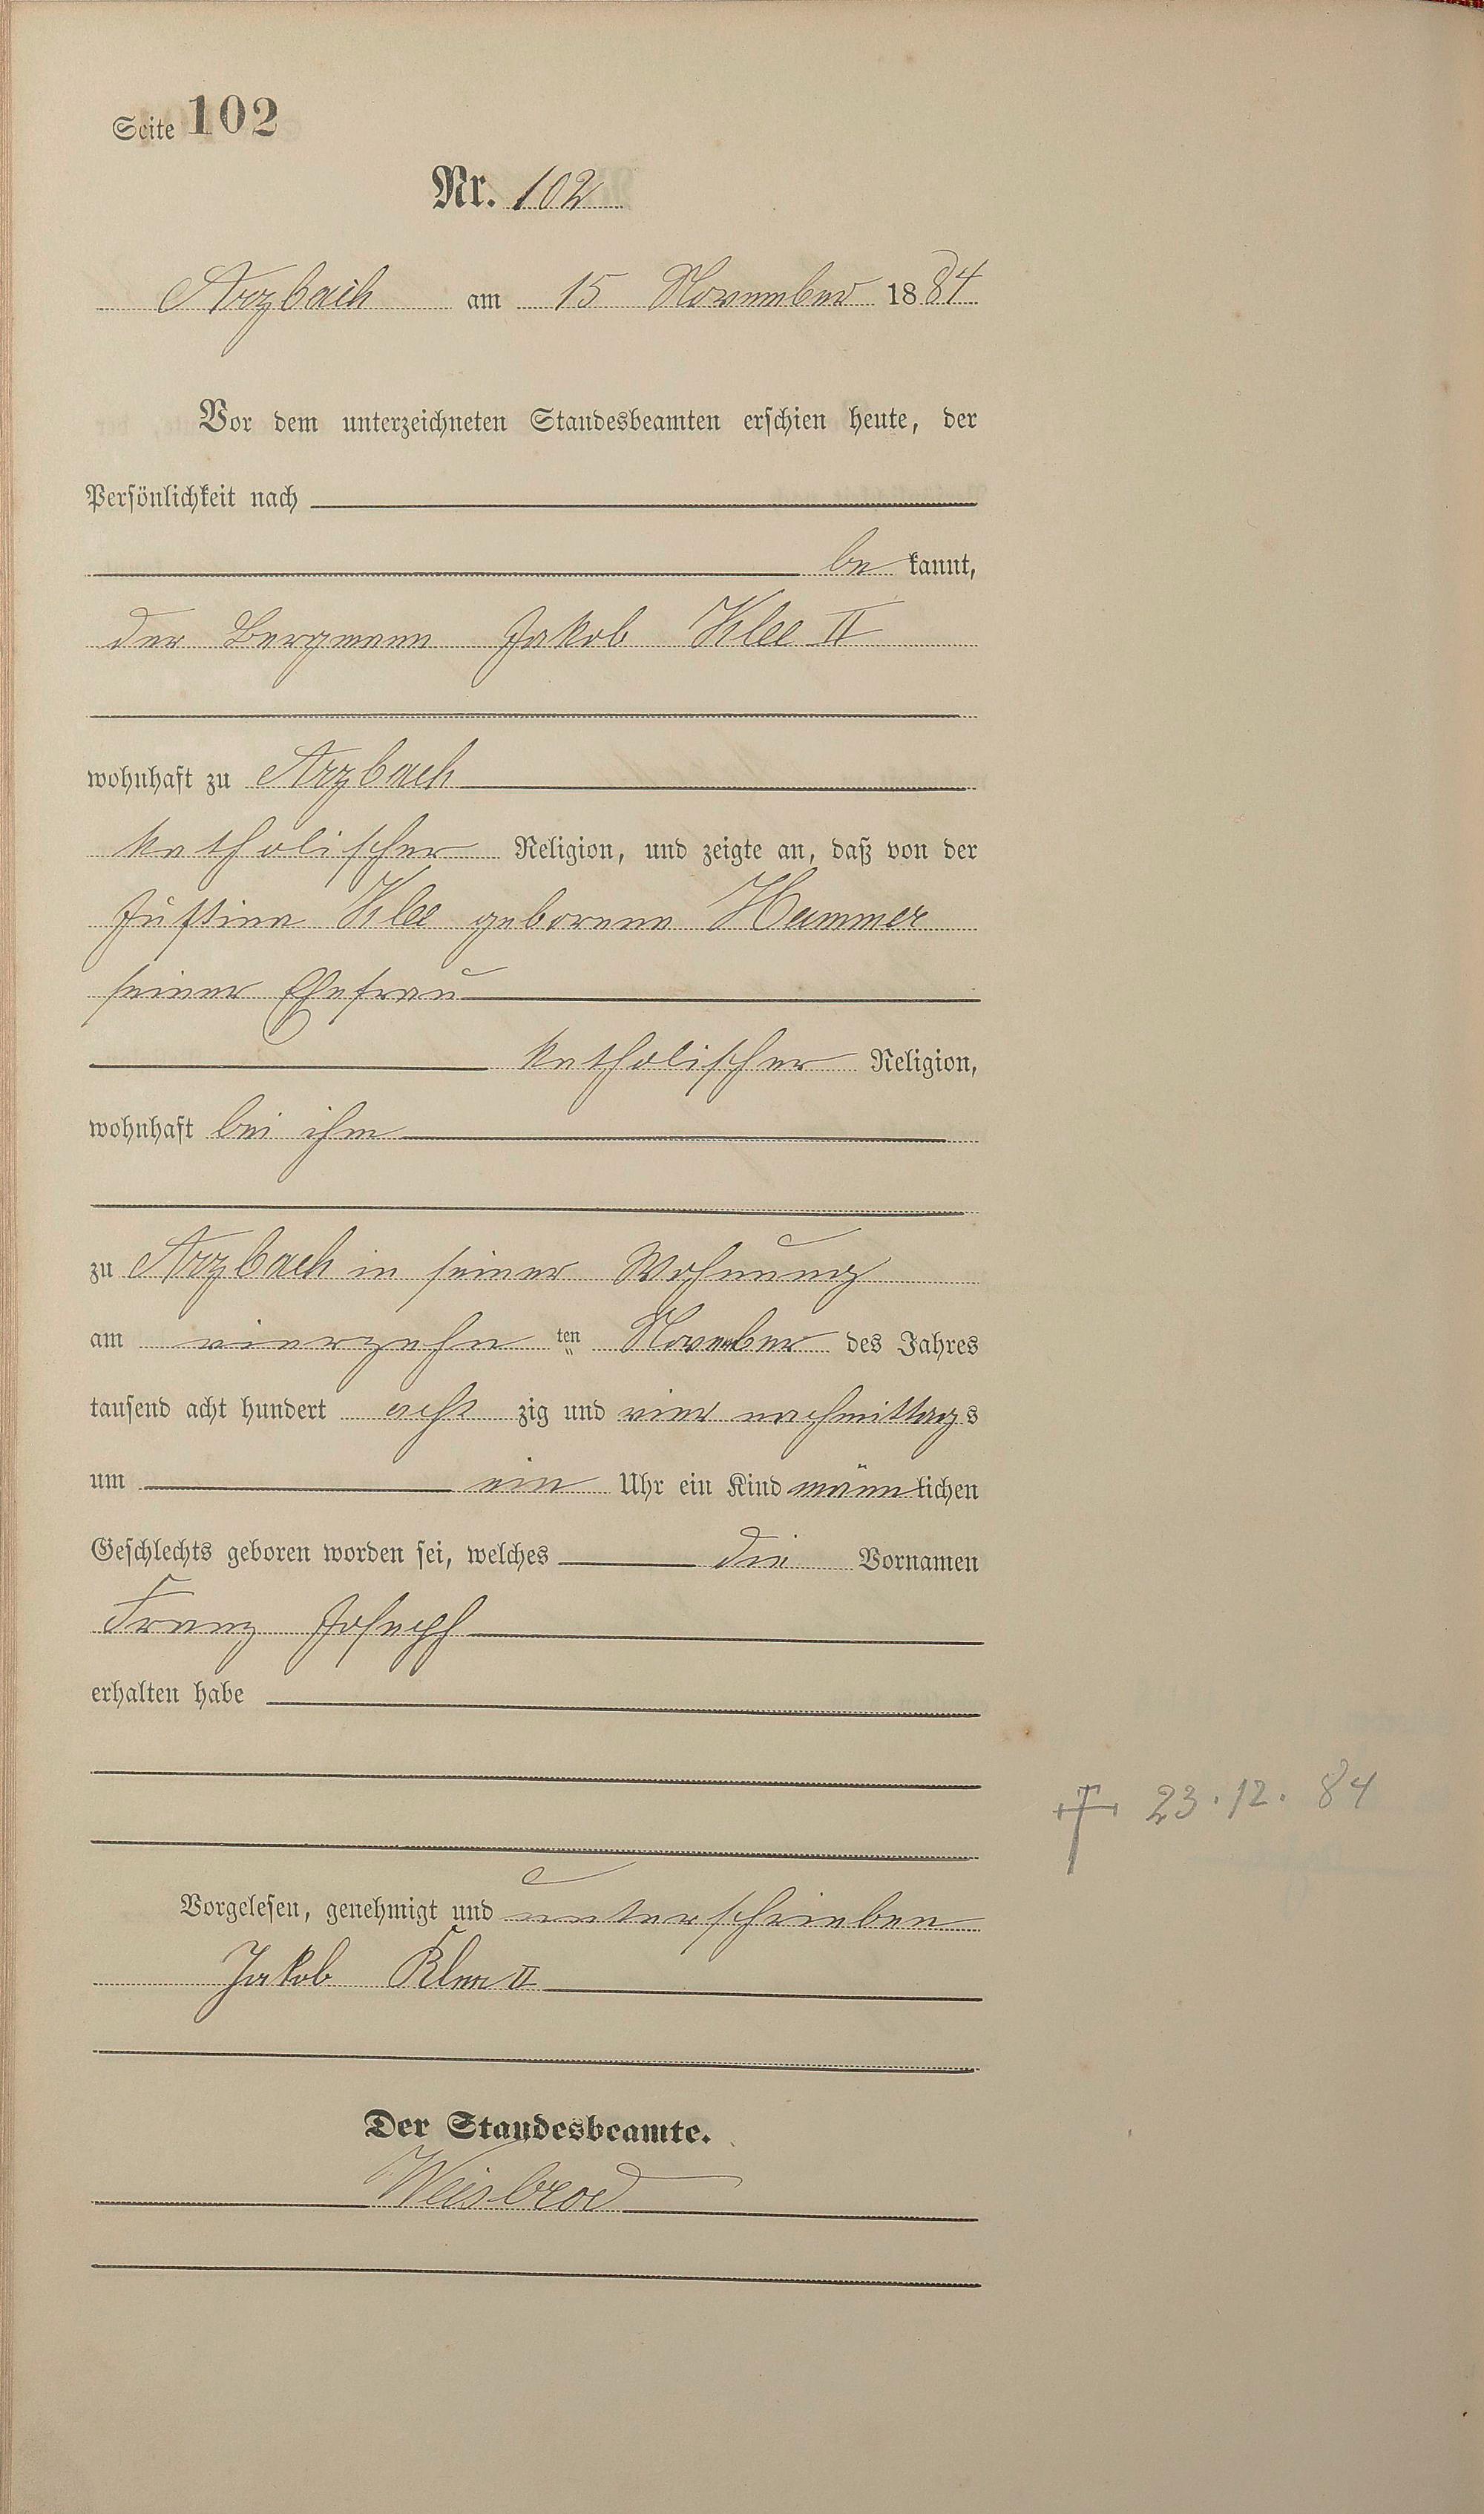 Seite 102
Nr. 102
Arzbach am 15 November 1884
Vor dem unterzeichneten Standesbeamten erschien heute, der
Persönlichkeit nach
bekannt,
der Bergmann Jakob Klee II
wohnhaft zu Arzbach
katholischer Religion, und zeigte an, daß von der
Justina Klee geborene Hammer
seiner Ehefrau
katholischer Religion,
wohnhaft bei ihm
zu Arzbach in seiner Wohnung
am vierzehn ten November des Jahres
tausend acht hundert acht zig und vier nachmittags
um ein Uhr ein Kind männlichen
Geschlechts geboren worden sei, welches die Vornamen
Franz Joseph
erhalten habe
† 23.12.84
Vorgelesen, genehmigt und unterschrieben
Jakob Klee II
Der Standesbeamte.
Weisbrod